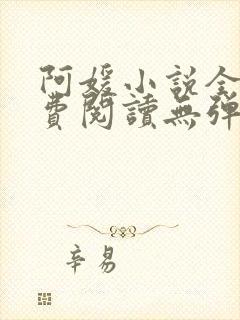 阿媛小說全
費閱讀無彈
辛易